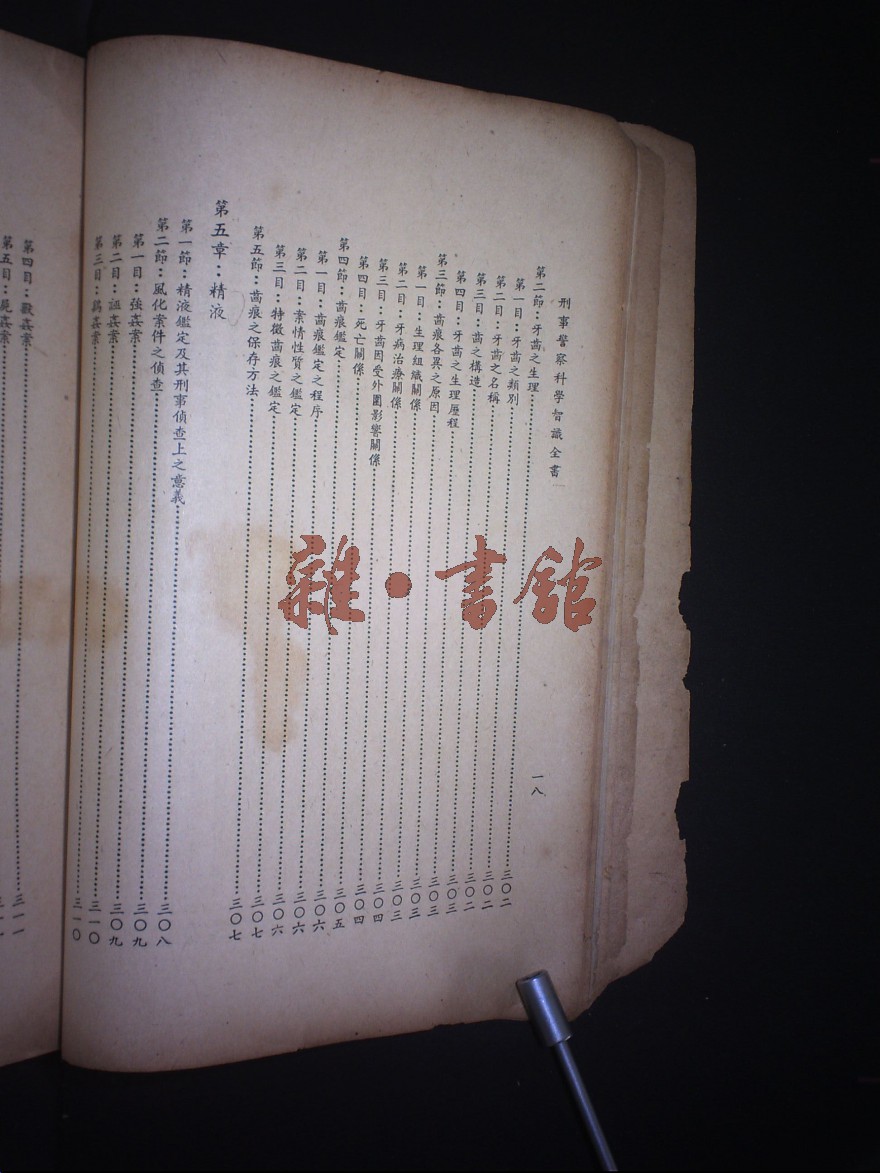 刑事警察科學智識全書
一八
第二節：牙齒之生理……三〇二
第一目：牙齒之類別……三〇二
第二目：牙齒之名稱……三〇二
第三目：齒之構造……三〇三
第四目：牙齒之生理歷程……三〇三
第三節：齒痕各異之原因……三〇三
第一目：生理組織關係……三〇三
第二目：牙病治療關係……三〇四
第三目：牙齒因受外圍影響關係……三〇四
第四目：死亡關係……三〇五
第四節：齒痕鑑定……三〇六
第一目：齒痕鑑定之程序……三〇六
第二目：案情性質之鑑定……三〇六
第三目：特徵齒痕之鑑定……三〇七
第五節：齒痕之保存方法……三〇七
第五章：精液
第一節：精液鑑定及其刑事偵查上之意義……三〇八
第二節：風化案件之偵查……三〇九
第一目：強姦案……三〇九
第二目：誣姦案……三一〇
第三目：鷄姦案……三一〇
第四目：獸姦案……三一一
第五目：屍姦案
雜·書館